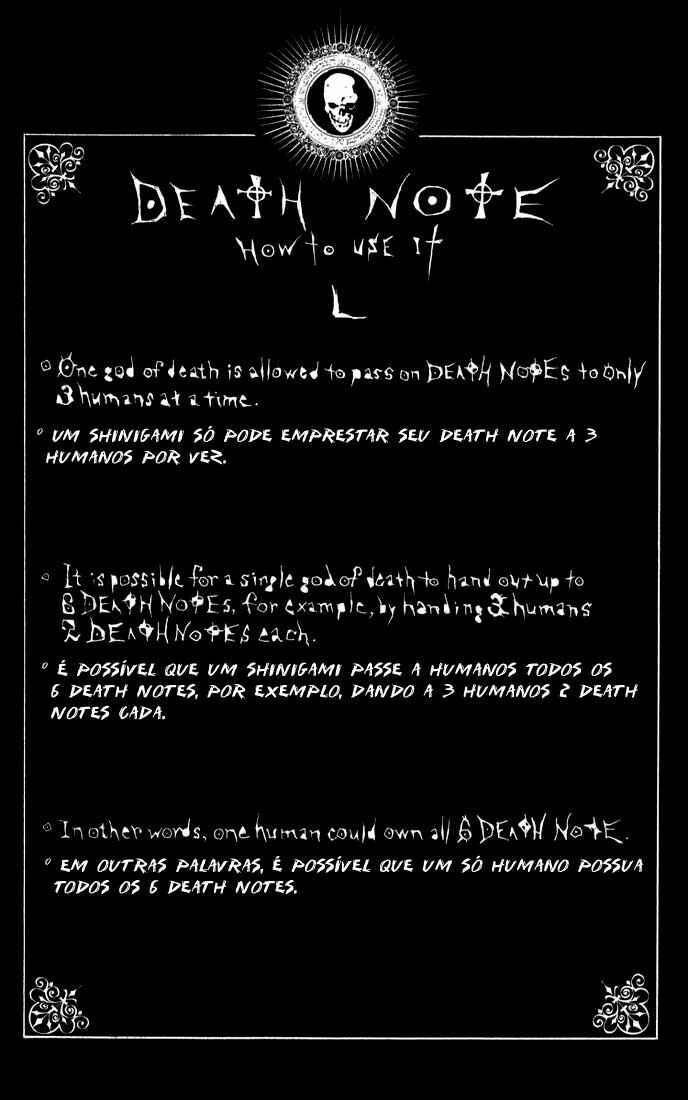 DEATH NOTE
HOW TO USE IT
L
One god of death is allowed to pass on DEATH NOTES to only
3 humans at a time.
° UM SHINIGAMI SÓ PODE EMPRESTAR SEU DEATH NOTE A 3
HUMANOS POR VEZ.
It is possible for a single god of death to hand out up to
6 DEATH NOTES, for example, by handing 3 humans
2 DEATH NOTES each.
° É POSSÍVEL QUE UM SHINIGAMI PASSE A HUMANOS TODOS OS
6 DEATH NOTES, POR EXEMPLO, DANDO A 3 HUMANOS 2 DEATH
NOTES CADA.
In other words, one human could own all 6 DEATH NOTE.
° EM OUTRAS PALAVRAS, É POSSÍVEL QUE UM SÓ HUMANO POSSUA
TODOS OS 6 DEATH NOTES.